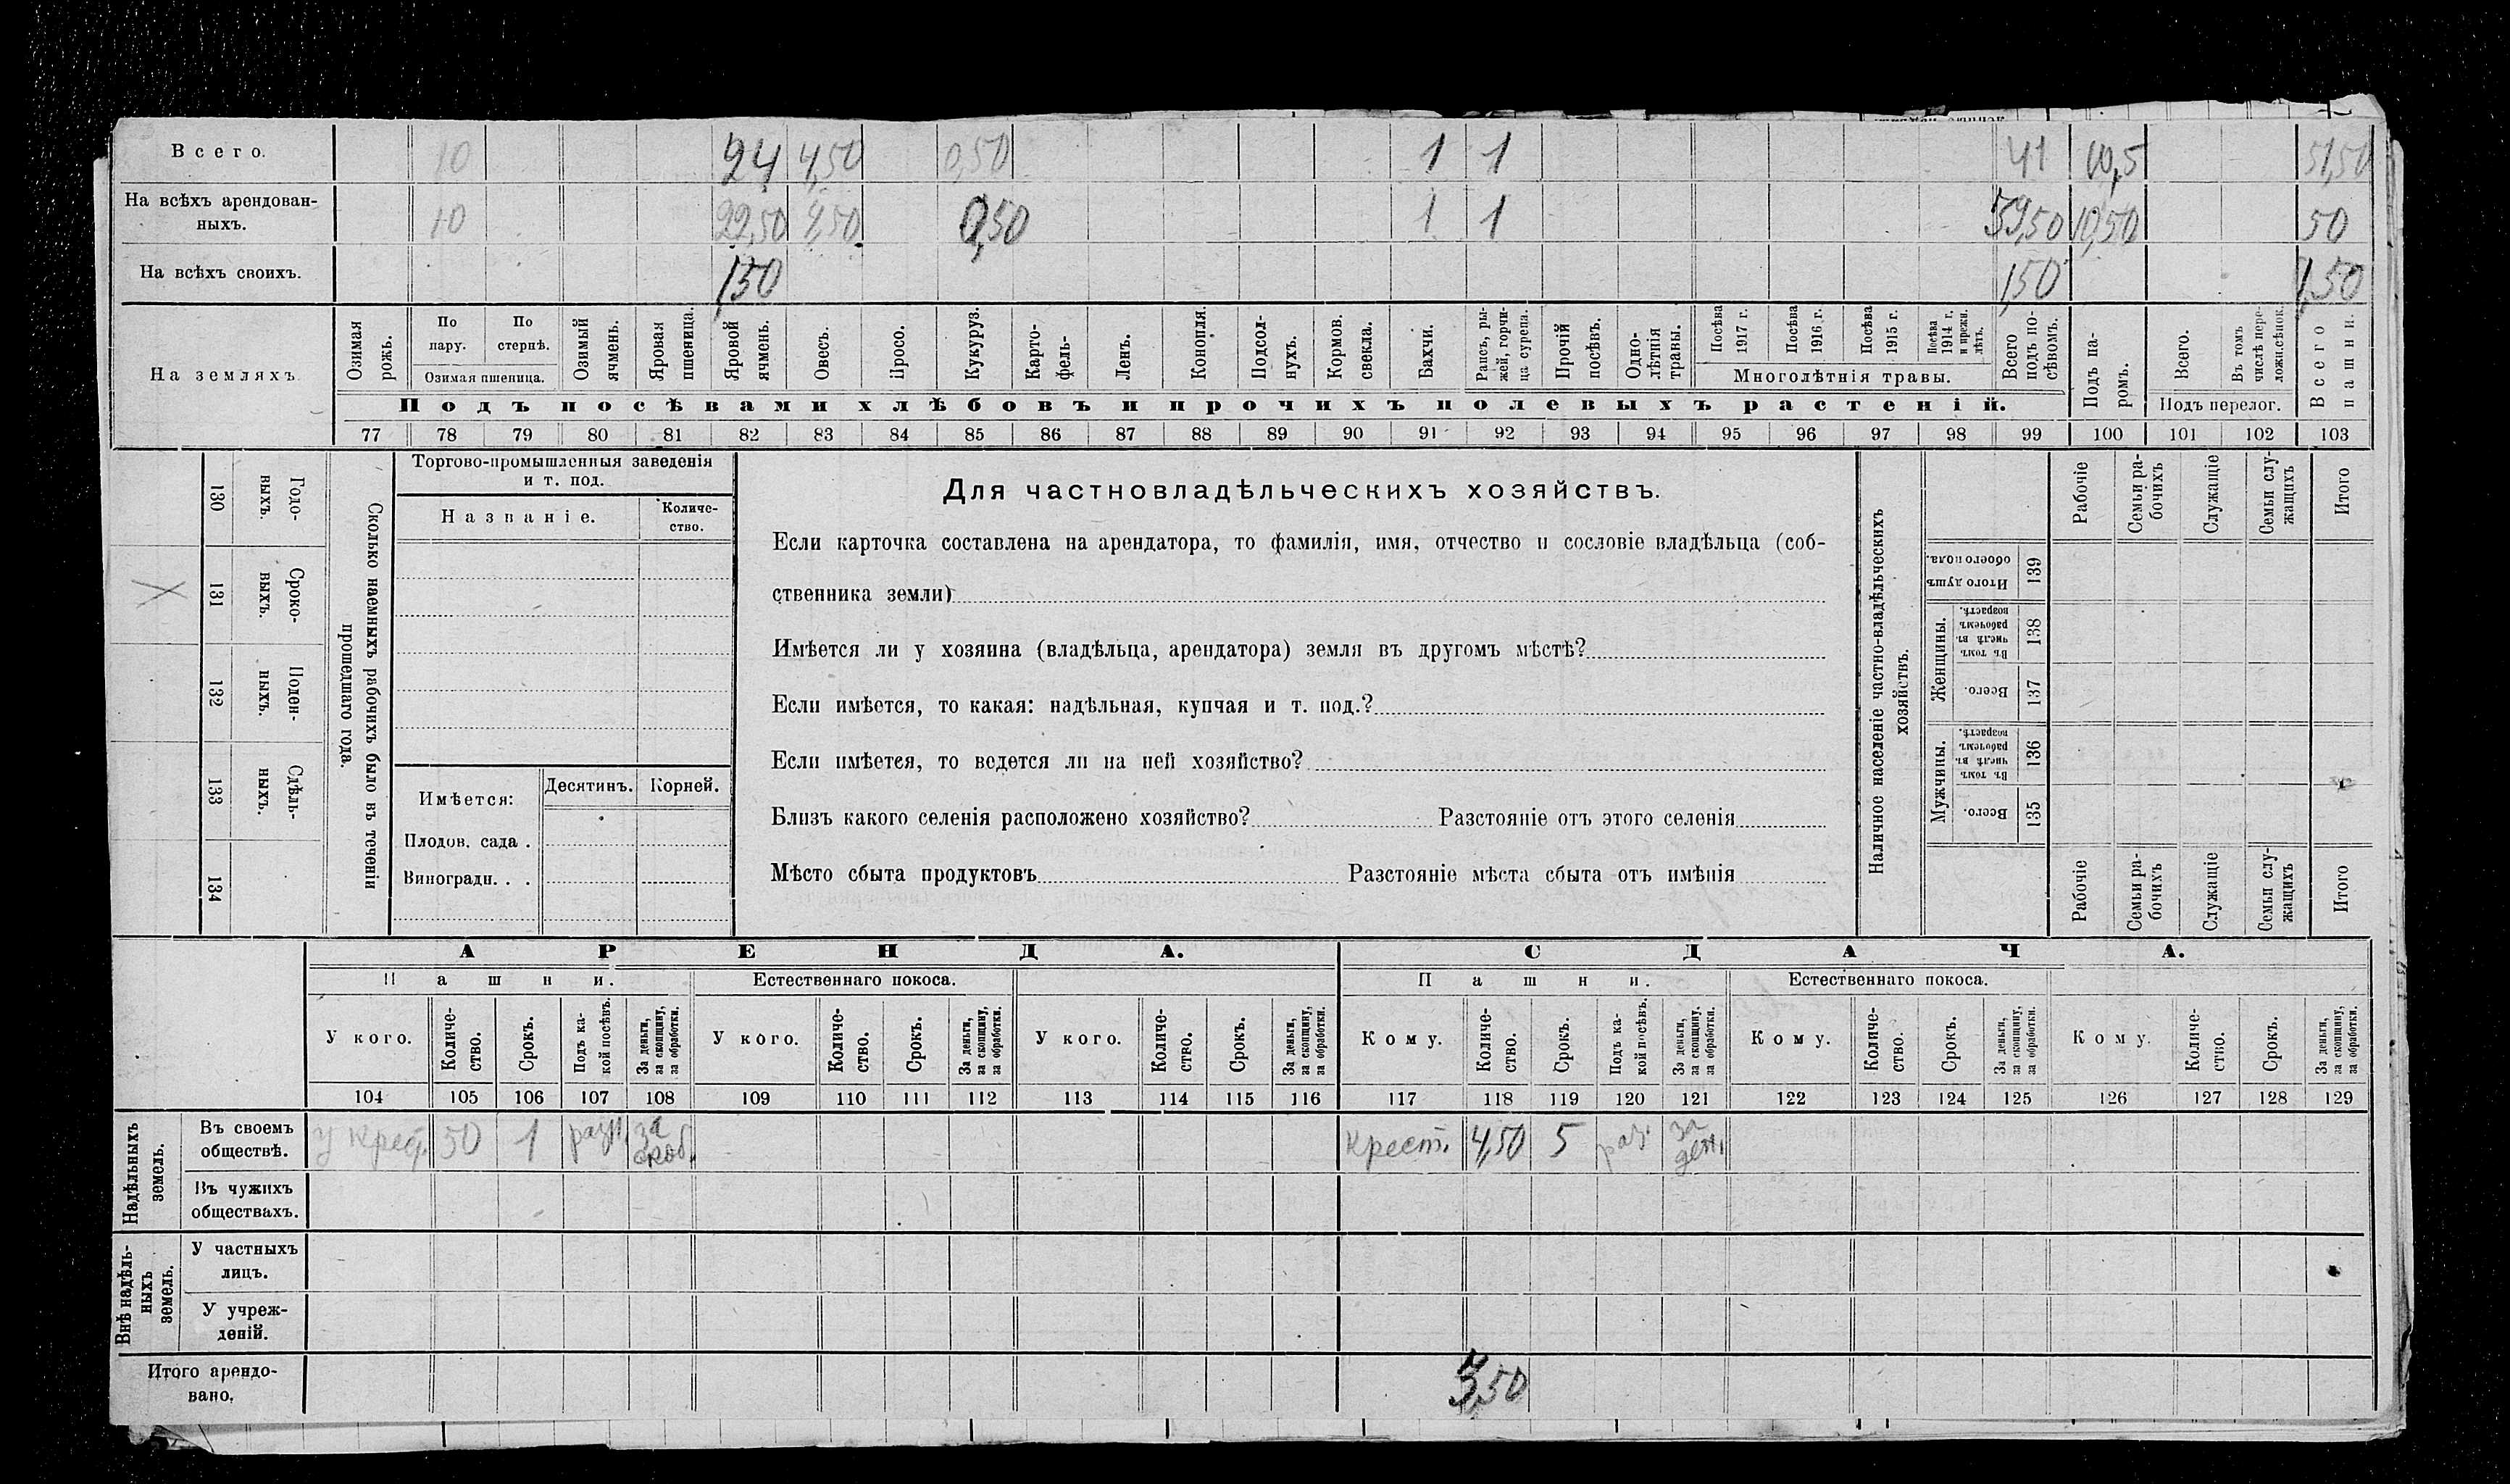 Всего. 10 24 4,50 0,50 1 1 41 10,5 51,50
На всѣхъ арендован-
ныхъ. 10 22,50 4,50 0,50 1 1 39,50 10,50 50
На всѣхъ своихъ. 1,50 1,50 1,50
На земляхъ
Озимая рожь.
По пару.
По стернѣ.
Озимая пшеница.
Озимый ячмень.
Яровая пшеница.
Яровой ячмень.
Овесъ.
Просо.
Кукуруз.
Карто-
фель-
Ленъ.
Конопля.
Подсол-
нухъ.
Кормов.
свекла.
Бахчи.
Рапсъ, ры-
жей, горчи-
ца сурепа.
Прочій
посѣвъ.
Одно-
лѣтнія
травы.
Посѣва
1917 г.
Посѣва
1916 г.
Посѣва
1915 г.
Посѣва
1914 г.
и прежн.
лѣтъ.
Многолѣтнія травы.
Всего
подъ по-
сѣвомъ.
Подъ па-
ромъ.
Всего.
Въ томъ
числѣ пере-
ложн.сѣнок.
Подъ перелог.
Всего
пашни.
Подъ посѣвами хлѣбовъ и прочихъ полевыхъ растеній.
77 78 79 80 81 82 83 84 85 86 87 88 89 90 91 92 93 94 95 96 97 98 99 100 101 102 103
Сколько наемныхъ рабочихъ было въ теченіи
прошедшаго года.
Годо-
выхъ.
130
Сроко-
выхъ.
131
Поден-
ныхъ.
132
Сдѣль-
ныхъ.
133
134
Торгово-промышленныя заведенія
и т. под.
Названіе.
Количе-
ство.
Имѣется:
Десятинъ. Корней.
Плодов. сада .
Виноградн. . .
Для частновладѣльческихъ хозяйствъ.
Если карточка составлена на арендатора, то фамилія, имя, отчество и сословіе владѣльца (соб-
ственника земли)
Имѣется ли у хозяина (владѣльца, арендатора) земля въ другомъ мѣстѣ?
Если имѣется, то какая: надѣльная, купчая и т. под.?
Если имѣется, то ведется ли на ней хозяйство?
Близъ какого селенія расположено хозяйство? Разстояніе отъ этого селенія
Мѣсто сбыта продуктовъ Разстояніе мѣста сбыта отъ имѣнія
Наличное населеніе частно-владѣльческихъ
хозяйствъ.
Рабочіе
Семьи ра-
бочихъ
Служащіе
Семьи слу-
жащихъ
Итого
Итого душъ
обоего пола.
139
Женщины.
Въ томъ
числѣ въ
рабочемъ
возрастѣ.
138
Всего.
137
Мужчины.
Въ томъ
числѣ въ
рабочемъ
возрастѣ.
136
Всего.
135
Рабочіе
Семьи ра-
бочихъ
Служащіе
Семьи слу-
жащихъ
Итого
АРЕНДА. СДАЧА.
Пашни. Естественнаго покоса. Пашни. Естественнаго покоса.
У кого.
Количе-
ство.
Срокъ.
Подъ ка-
кой посѣвъ.
За деньги,
за скопщину,
за обработки.
У кого.
Количе-
ство.
Срокъ.
За деньги,
за скопщину,
за обработки.
У кого.
Количе-
ство.
Срокъ.
За деньги,
за скопщину,
за обработки.
Кому.
Количе-
ство.
Срокъ.
Подъ ка-
кой посѣвъ.
За деньги,
за скопщину,
за обработки.
Кому.
Количе-
ство.
Срокъ.
За деньги,
за скопщину,
за обработки.
Кому.
Количе-
ство.
Срокъ.
За деньги,
за скопщину,
за обработки.
104 105 106 107 108 109 110 111 112 113 114 115 116 117 118 119 120 121 122 123 124 125 126 127 128 129
Надѣльныхъ
земель.
Въ своемъ
обществѣ.
у крест. 50 1 за Крест. 4,50 5 раз. за
ден.
Въ чужихъ
обществахъ.
Внѣ надѣль-
ныхъ
земель.
У частныхъ
лицъ.
У учреж-
деній.
Итого арендо-
вано.